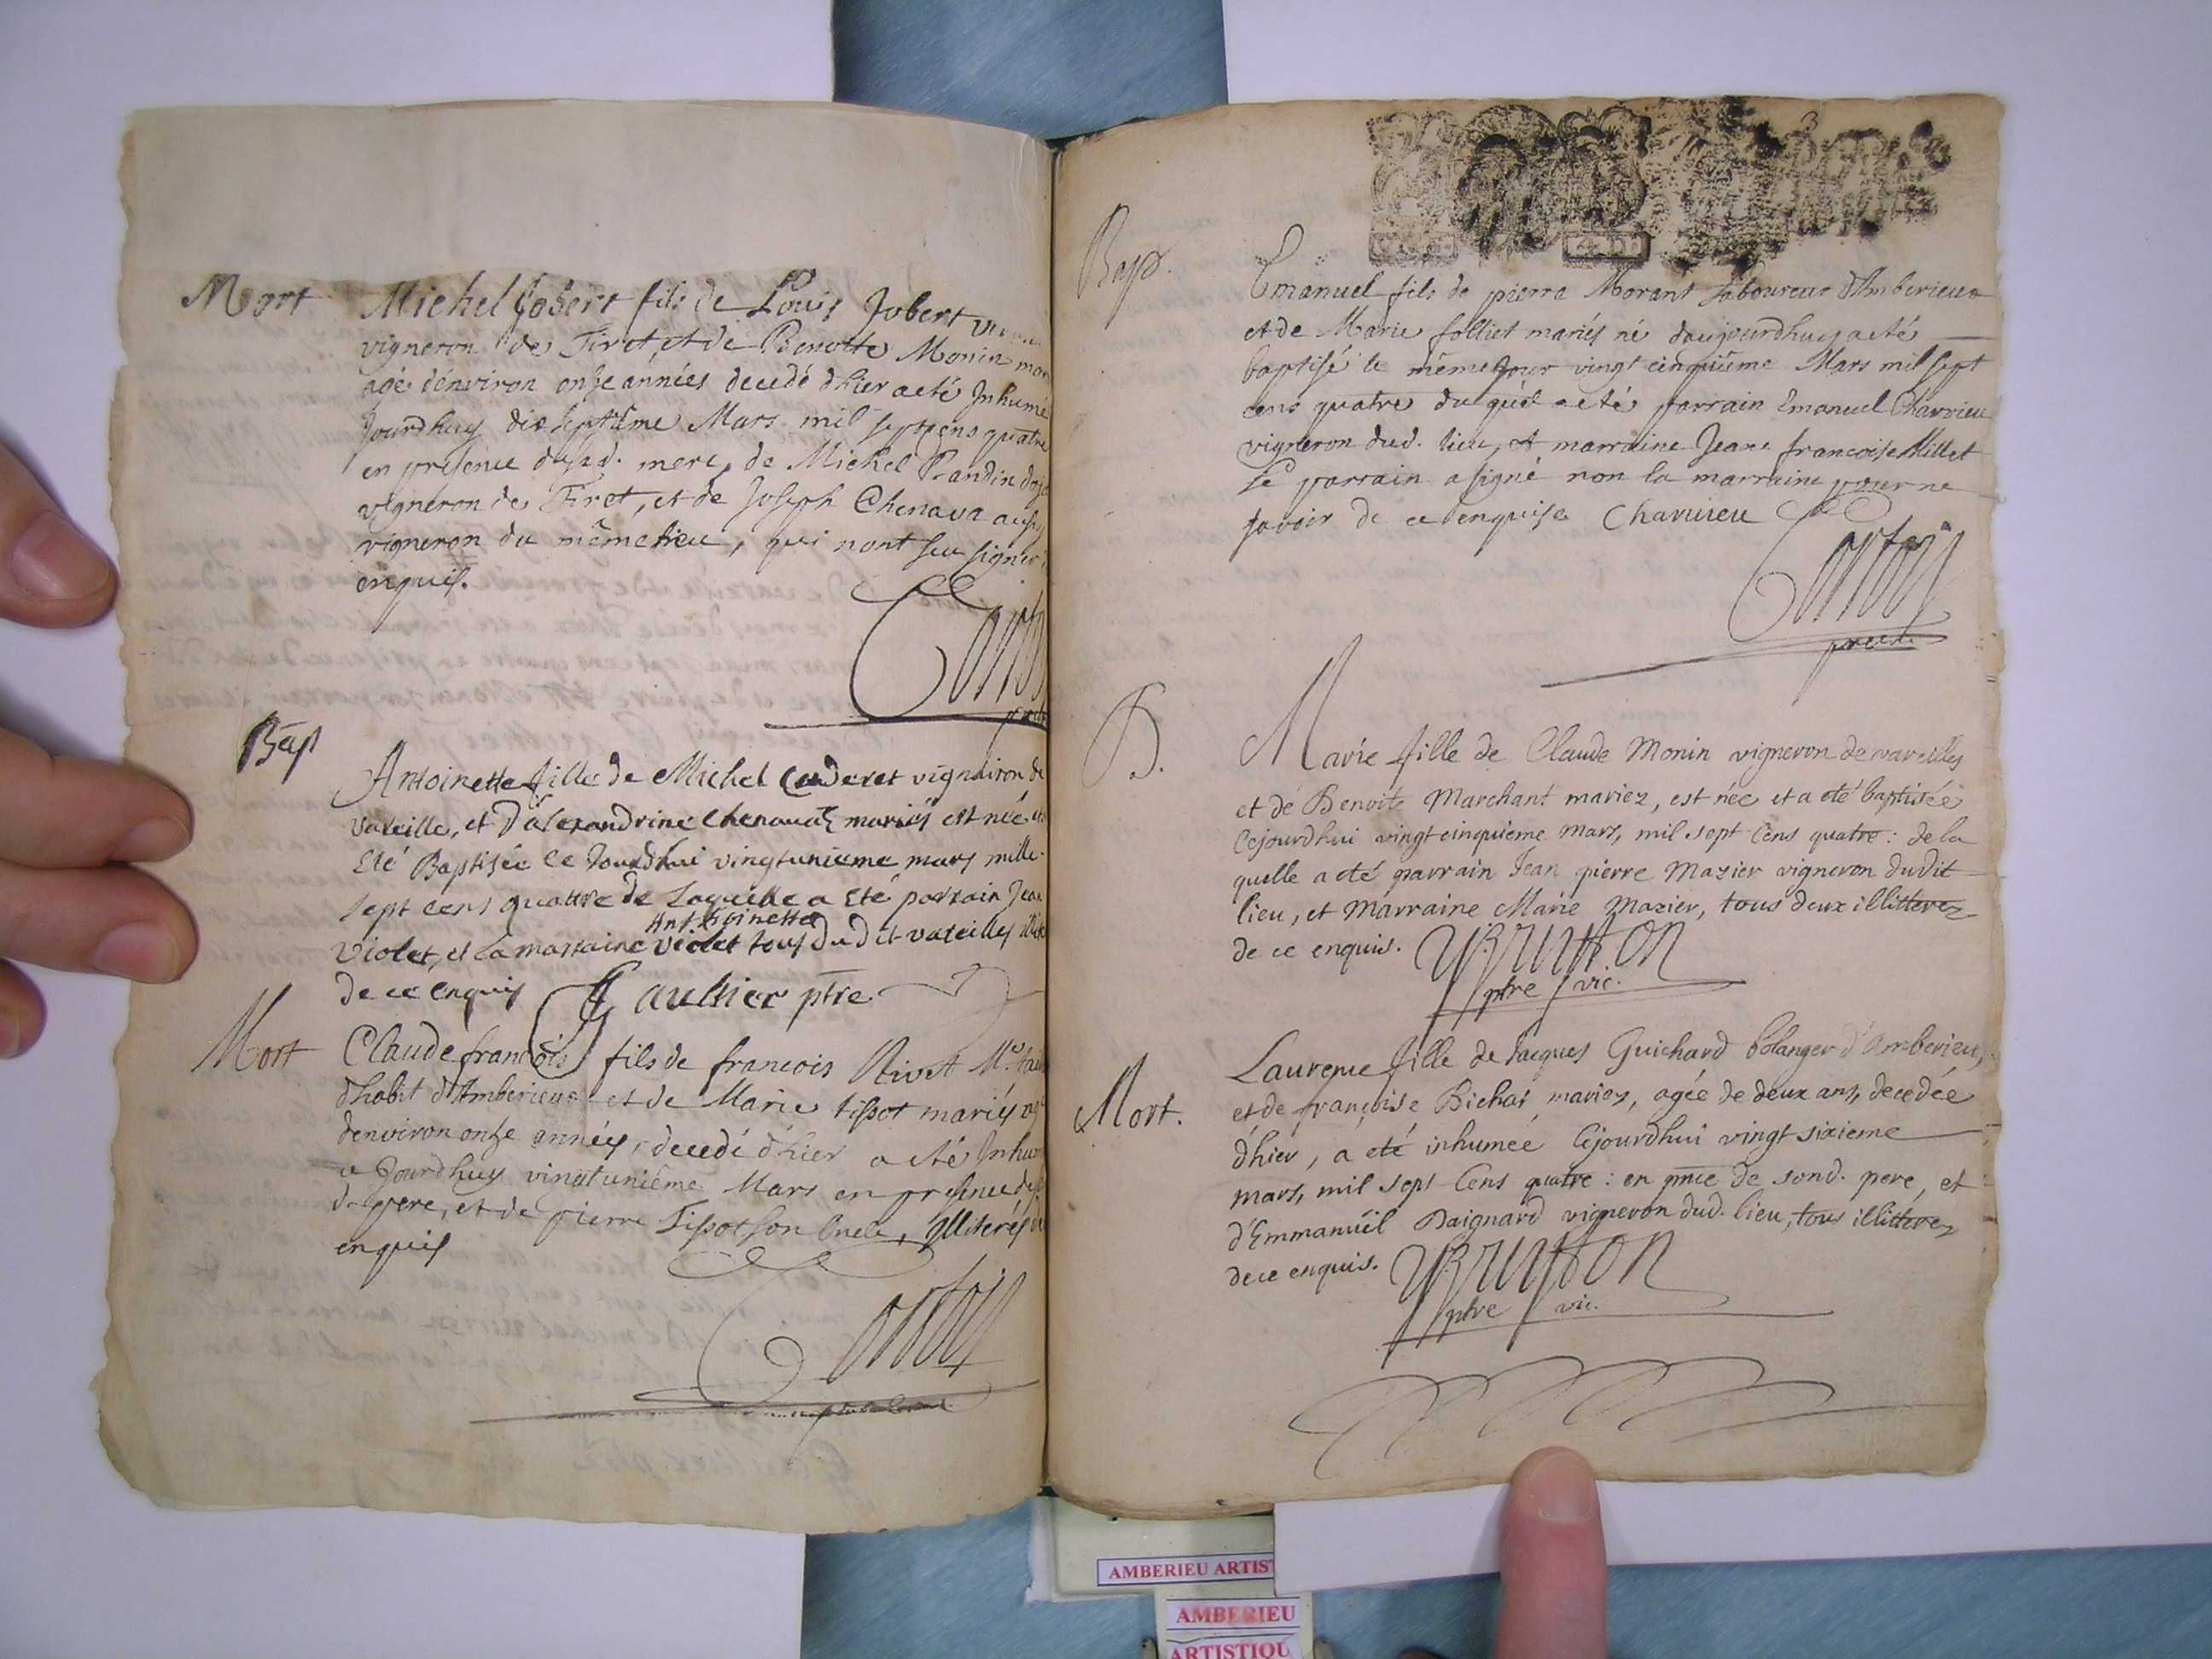 Mort
Michel Jobert fils de Louis Jobert
vigneron de Tiret, et de Benotte Monin
agé d'environ onse années decedé d'hier a eté Inhumé
Jourdhuy dix septiéme Mars mil sept cens quatre
en presence de sad. mere, de Michel Pandin
vigneron de Tiret, et de Joseph Chenava aussy
vigneron du même lieu, qui n'ont seu signer
enquis.
Bap
Antoinette fille de Michel Cuderet vignairon de
Vareille, et d'alexandrine Chenavaz mariés est née et
Eté Baptisée ce Jourdhui vingtunieme mars mille
sept cens quattre de Laquelle a Eté parrain Jean
Anthoinette
Violet, et La marraine violet tous dudit vareilles
de ce enquis Gaultier ptre
Mort
Claude francois fils de francois Rivet Me.
d'habit d'Amberieux et de Marie tissot mariés
d'environ onse années, decedé d'hier a eté Inhu
ce Jourdhuy vingtuniéme Mars en presence de
d. pere, et de pierre Tissot son Oncle, Illiterés
enquis
3
Bap.
Emanuel fils de pierre Morant Laboureur d'Amberieux
et de Marie folliet mariés né d'aujourdhuy a eté
baptisé le même Jour vingt cinquiéme Mars mil sept
cens quatre du quel a eté parrain Emanuel Charvieu
vigneron dud. lieu, et marraine Jeane francoise Millet
Le parrain a signé non la marraine pour ne
savoir de ce enquise Charvieu
B.
Marie fille de Claude Monin vigneron de vareilles
et de Benoite Marchant mariez, est née et a eté baptisée
Cejourdhui vingt cinquieme mars, mil sept Cens quatre : de la
quelle a eté parrain Jean pierre Mazier vigneron dudit
lieu, et Marraine Marie Mazier, tous deux illitterez
de ce enquis.
ptre vic.
Mort.
Laurence fille de Jacques Guichard bolanger d'Amberieu,
et de françoise Bichat mariez, agée de deux ans, decedée
d'hier, a eté inhumée Cejourdhui vingt sixieme
mars, mil sept Cens quatre : en pnce de sond. pere, et
d'Emmanuël vigneron dud. lieu, tous illitterez
de ce enquis.
ptre vic.
AMBERIEU ARTIST
AMBERIEU
ARTISTIQU